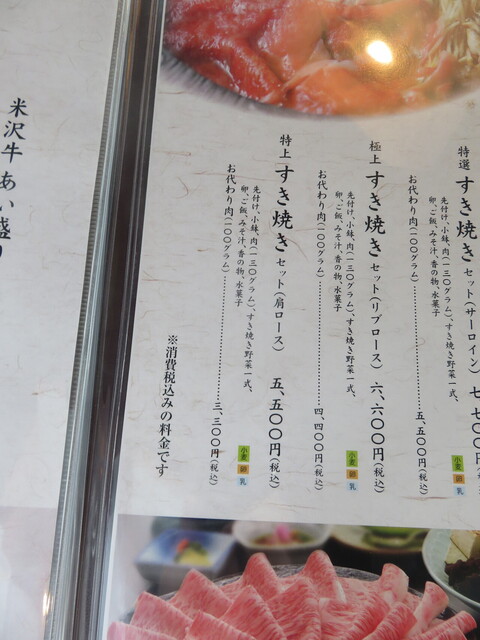 特選 すき焼き セット(サーロイン) 七、七〇〇円(税
先付け、小鉢、肉(一三〇グラム)、すき焼き野菜一式、
卵、ご飯、みそ汁、香の物、水菓子
小麦 卵 乳
お代わり肉(一〇〇グラム)………………五、五〇〇円(税込)
極上 すき焼き セット(リブロース) 六、六〇〇円(税込)
先付け、小鉢、肉(一三〇グラム)、すき焼き野菜一式、
卵、ご飯、みそ汁、香の物、水菓子
小麦 卵 乳
お代わり肉(一〇〇グラム)………………四、四〇〇円(税込)
特上 すき焼き セット(肩ロース) 五、五〇〇円(税込)
先付け、小鉢、肉(一三〇グラム)、すき焼き野菜一式、
卵、ご飯、みそ汁、香の物、水菓子
小麦 卵 乳
お代わり肉(一〇〇グラム)………………三、三〇〇円(税込)
※消費税込みの料金です
米沢牛あい盛り